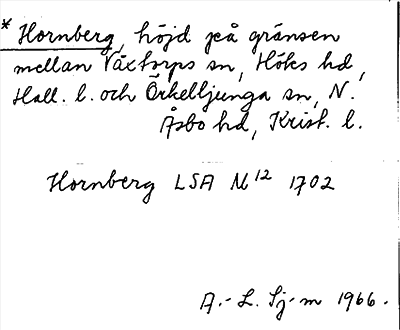 * Hornberg, höjd på gränsen
mellan Växtorps sn, Höks hd,
Hall. l. och Örkelljunga sn, N.
Åsbo hd, Krist. l.
Hornberg LSA M12 1702
A.-L. Sj-m 1966.